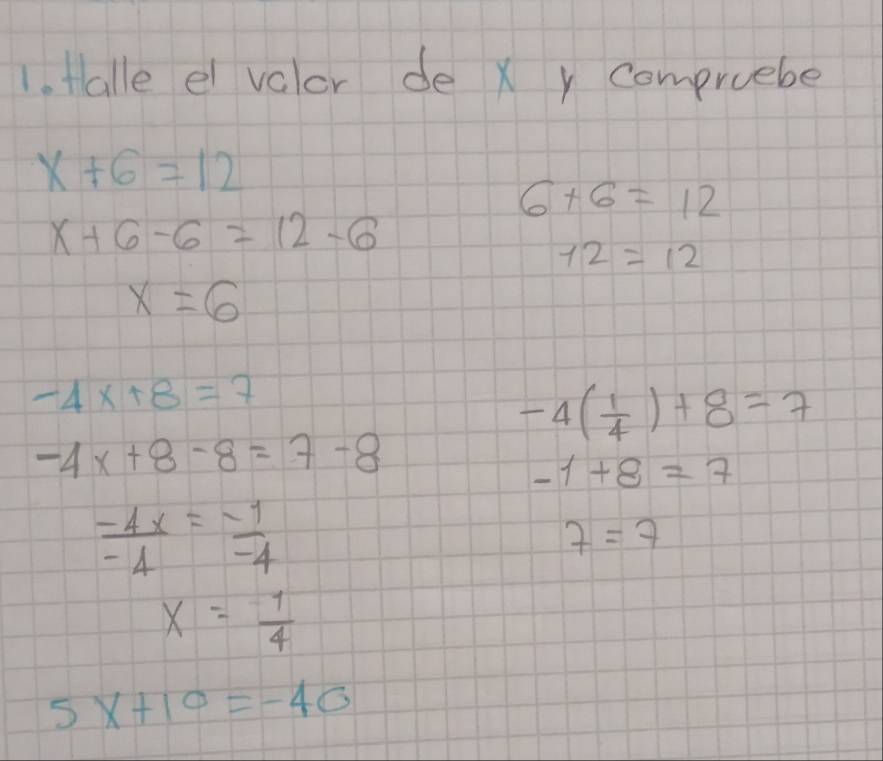 1. Halle el valor de x y compruebe
x + 6 = 12
x + 6 - 6 = 12 - 6
x = 6
6 + 6 = 12
12 = 12
-4x + 8 = 7
-4x + 8 - 8 = 7 - 8
-4x/-4 = -1/-4
x = 1/4
-4(1/4) + 8 = 7
-1 + 8 = 7
7 = 7
5x + 10 = -40